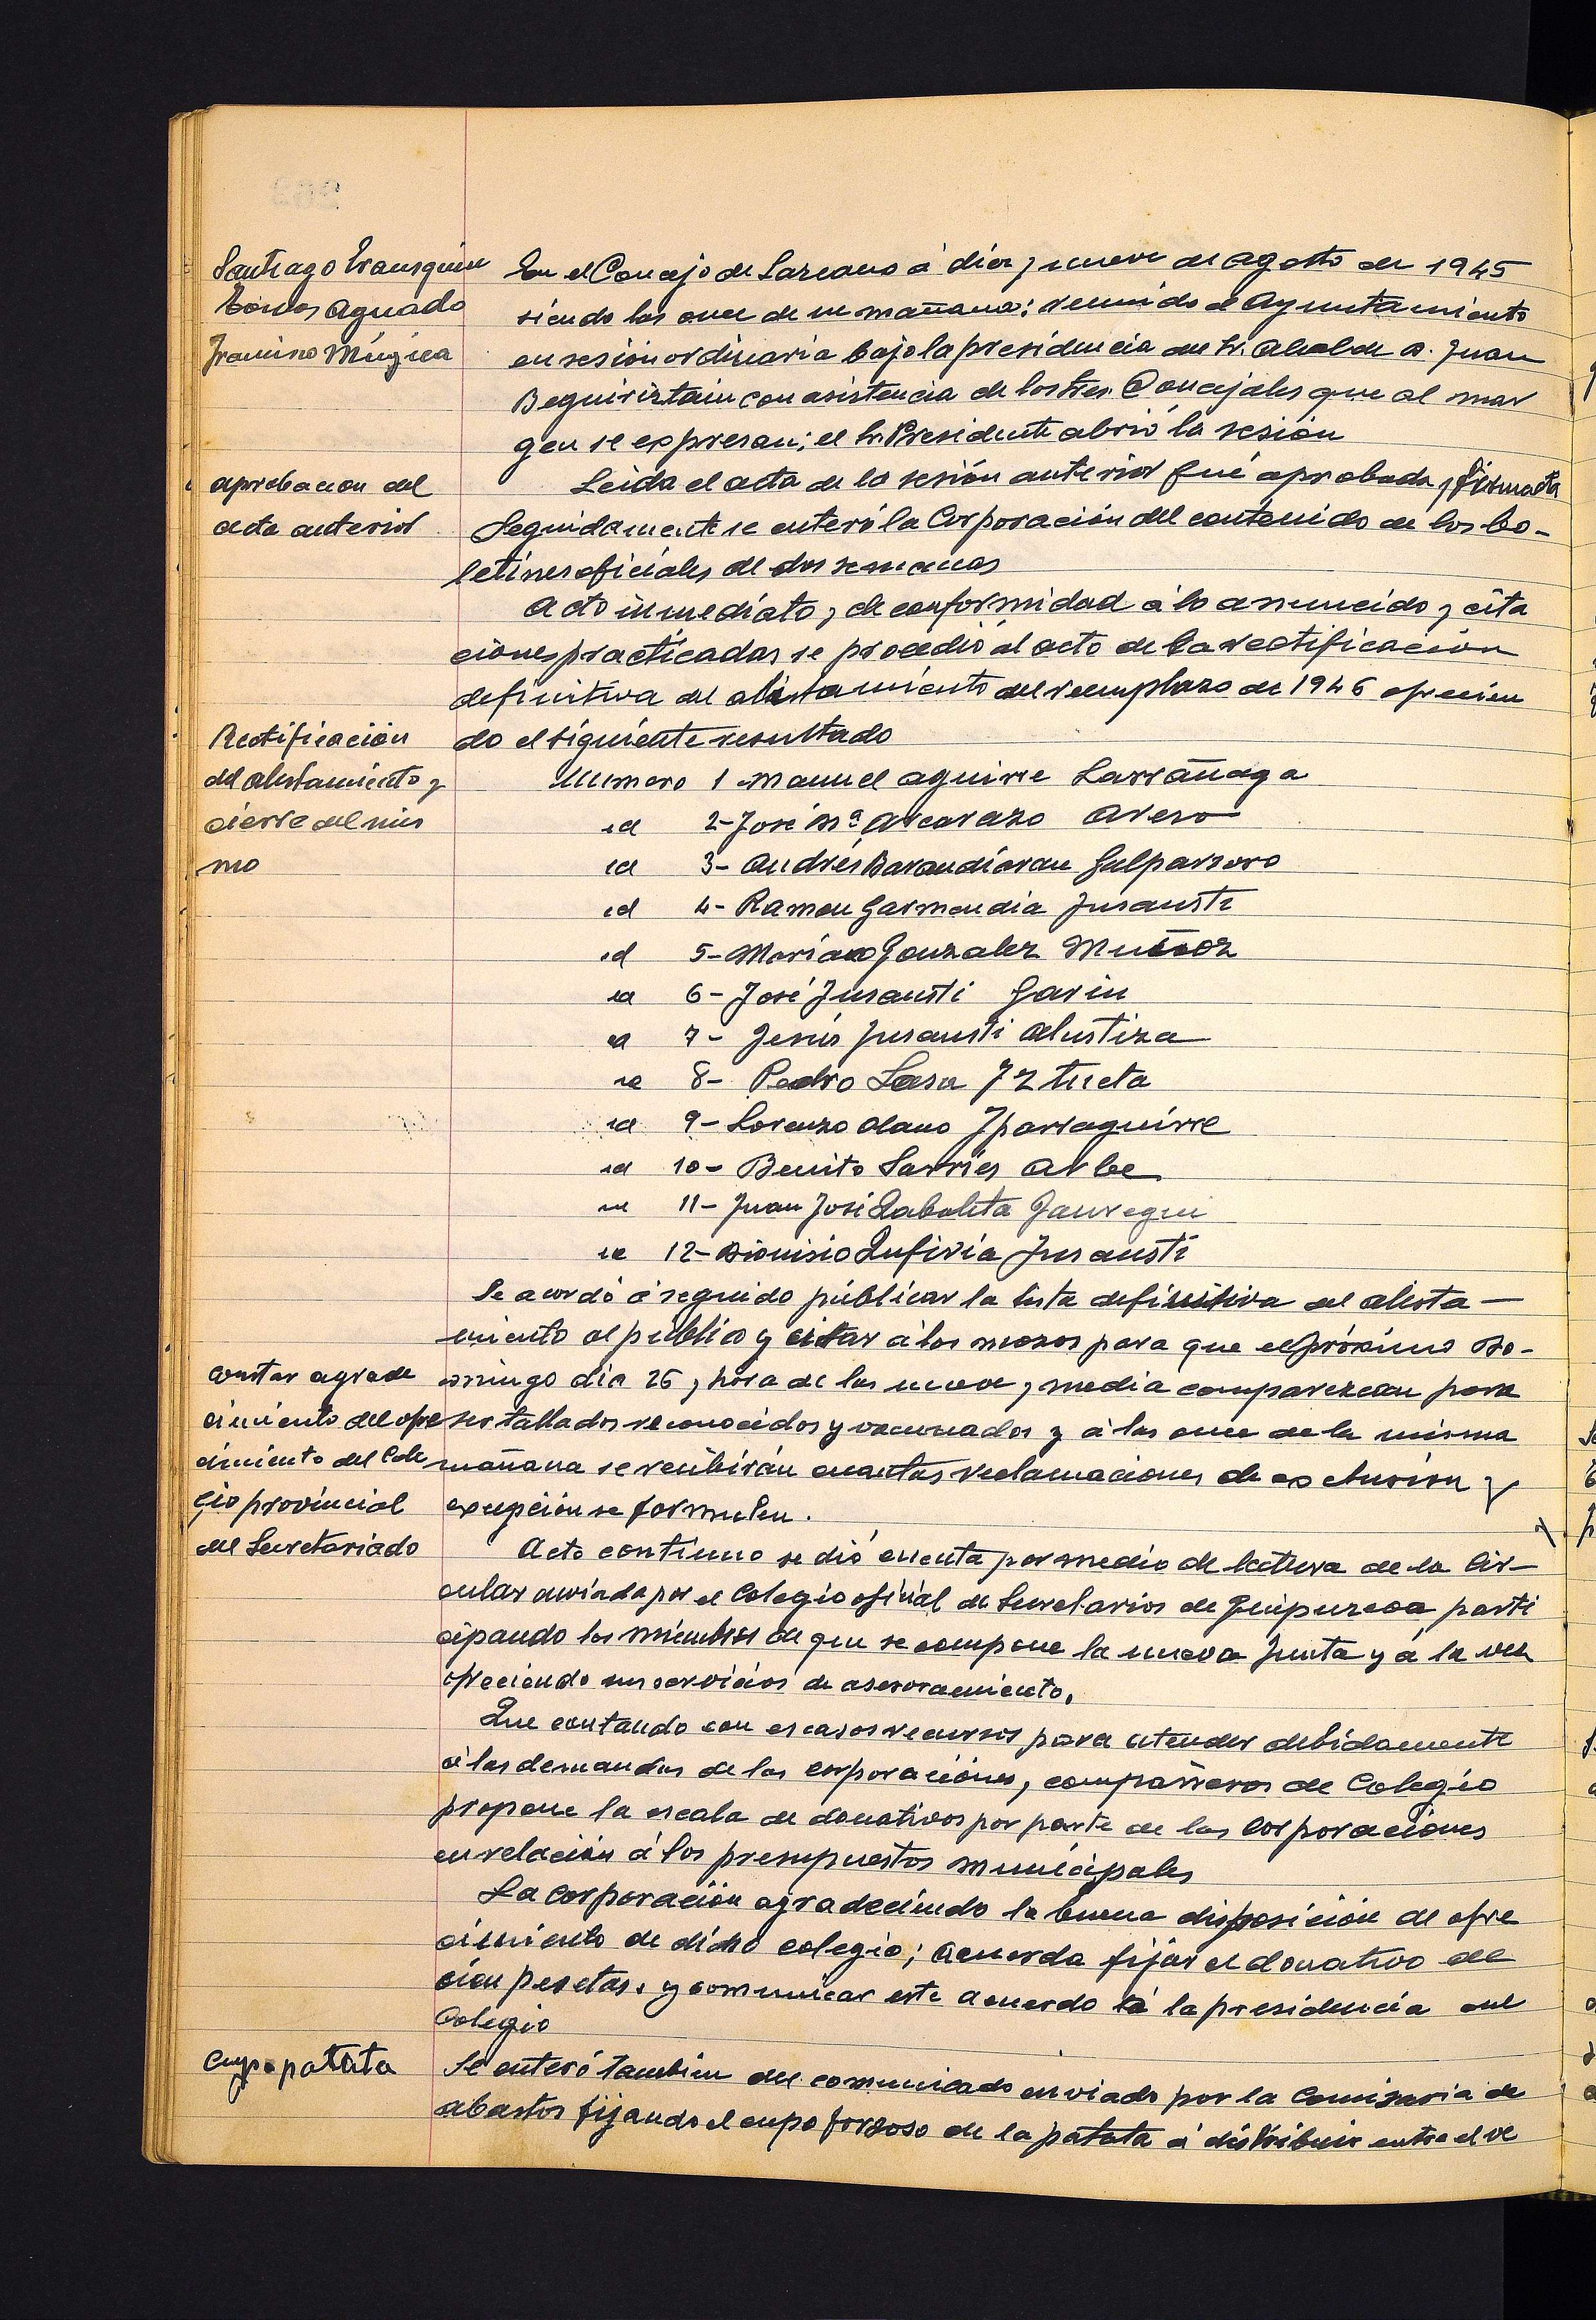 Santiago
Aguado
Francisco Múgica
En el Concejo de Lazcano á diez y nueve de agosto de 1945
siendo las once de su mañana; reunido el Ayuntamiento
en sesión ordinaria bajo la presidencia del Sr. Alcalde D. Juan
Beguiriztain con asistencia de los tres Concejales que al mar
gen se expresan; el Sr. Presidente abrió la sesión
aprobacion del
acta anterior
Leida el acta de la sesión anterior fué aprobada y firmada
Seguidamente se enteró la Corporación del contenido de los bo-
letines oficiales de dos semanas
Acto inmediato, de conformidad á lo anunciado y cita
ciones practicadas se procedió al acto de la rectificación
definitiva del alistamiento del reemplazo de 1946 ofrecien
do el siguiente resultado
Rectificación
del alistamiento y
cierre del mis
mo
Numero 1 Manuel Aguirre Larrañaga
id 2- José Mª Alcarazo
id 3- Andrés Barandiaran Galparsoro
id 4- Ramon Garmendia Insausti
id 5- Mariano Gonzalez Muñoz
id 6- José Insausti Garin
id 7- Jesús Insausti Alustiza
id 8- Pedro Lasa Iztueta
id 9- Lorenzo Olano Iparraguirre
id 10- Benito Sarries Arbe
id 11- Juan José Zabaleta Jauregui
id 12- Dionisio Zufiria Insausti
Se acordó á seguido públicar la lista definitiva del alista-
miento al publico y citar á los mozos para que el próximo Do-
mingo dia 26, hora de las nueve y media comparezcan para
ser tallados reconocidos y vacunados y á las once de la misma
mañana se recibirán cuantas reclamaciones de exclusión y
excepción se formulen.
constar agrade
cimiento del ofre
cimiento del Cole
gio provincial
del Secretariado
Acto continuo se dió cuenta por medio de lectura de la Cir-
cular enviada por el Colegio oficial de Secretarios de Guipuzcoa parti
cipando los miembros de que se compone la nueva Junta y á la vez
ofreciendo sus servicios de asesoramiento.
Que contando con escasos recursos para atender debidamente
á las demandas de las corporaciones, compañeros de Colegio
propone la escala de donativos por parte de las Corporaciones
en relación á los presupuestos municipales
La Corporación agradeciendo la buena disposición de ofre
cimiento de dicho colegio; acuerda fijar el donativo de
cien pesetas. y comunicar este acuerdo á la presidencia del
Colegio
Cupo patata
Se enteró tambien del comunicado enviado por la Comisaria de
abastos fijando el cupo forzoso de la patata á distribuir entre el ve